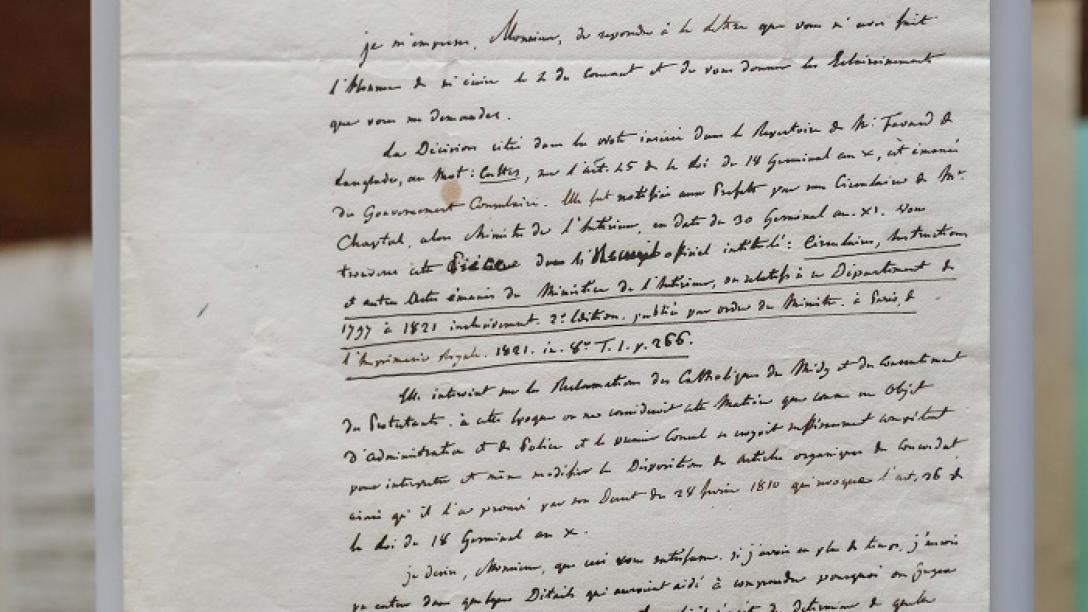 je m'empresse, Monsieur, de repondre à la lettre que vous m'avez fait
l'Honneur de m'écrire le 2 du courant et de vous donner les Eclaircissements
que vous me demandez.
La Décision citée dans la note inserée dans le Repertoire de Mr. Favard de
Langlade, au Mot: Cultes, sur l'art. 45 de la Loi du 18 Germinal an X, est émanée
du Gouvernement Consulaire. Elle fut notifiée aux Prefets par une Circulaire de Mr.
Chaptal, alors Ministre de l'Intérieur, en date du 30 Germinal an XI. Vous
trouverez cette Pièce dans le Recueil officiel intitulé: Circulaires, Instructions
et autres Actes émanés du Ministère de l'Intérieur, ou relatifs à ce Département de
1797 à 1821 inclusivement. 2e. Edition. publié par ordre du Ministre. à Paris, de
l'Imprimerie Royale. 1821. in-8°. T. 1. p. 266.
Elle intervint sur les Reclamations des Catholiques du Midy et du Consentement
des Protestants. à cette époque on ne considerait cette Matière que comme un Objet
d'administration et de Police et le premier Consul se croyait suffisamment compétent
pour interpreter et même modifier les Dispositions des Articles organiques du Concordat
ainsi qu'il l'a prouvé par son Decret du 28 fevrier 1810 qui revoque l'art. 26 de
la Loi du 18 Germinal an X.
je desire, Monsieur, que ceci vous satisfasse. si j'avois eu plus de temps, j'aurois
pu entrer dans quelques Détails qui auroient aidé à comprendre pourquoi on
de determiner de quelle